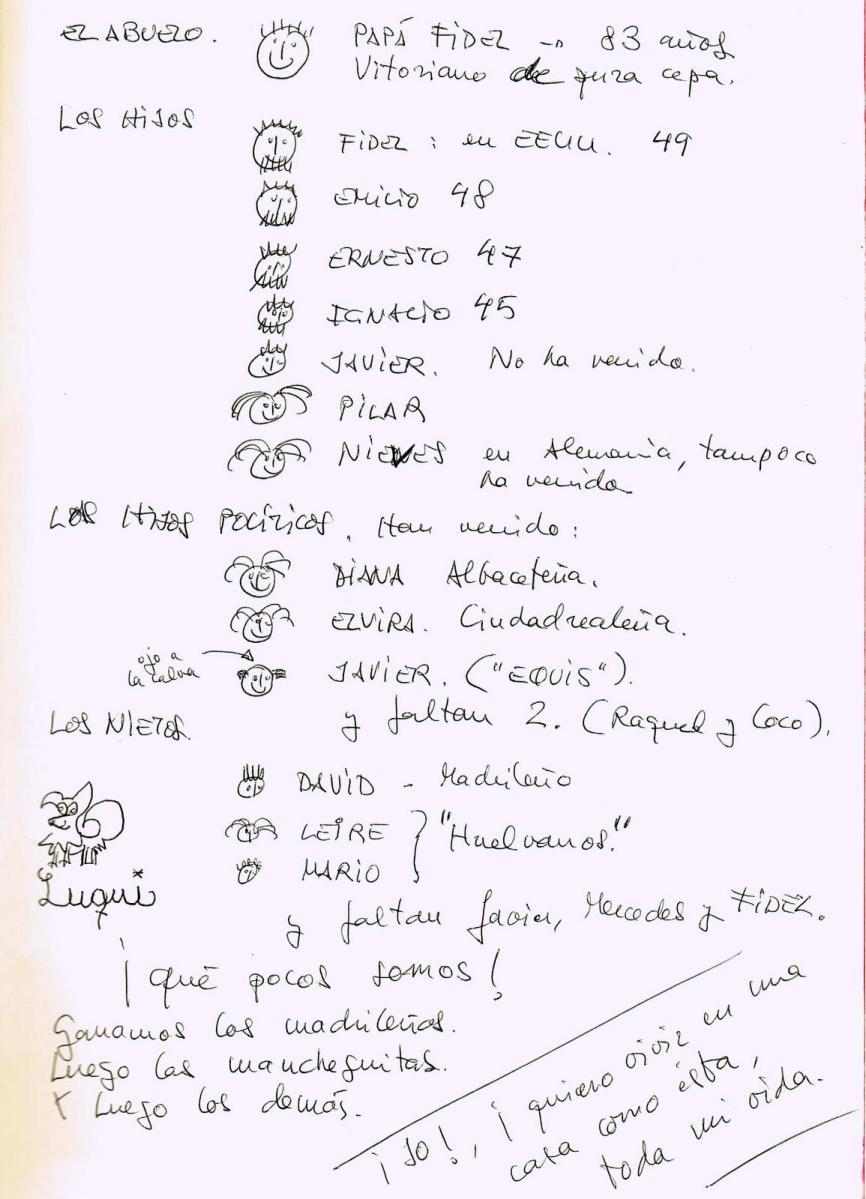 EL ABUELO. PAPÁ FIDEL → 83 años
Vitoriano de pura cepa.
LOS HIJOS
FIDEL : en EEUU. 49
EMILIO 48
ERNESTO 47
IGNACIO 45
JAVIER. No ha venido.
PILAR
NIEVES en Alemania, tampoco
ha venido.
LOS HIJOS POLÍTICOS. Han venido:
DIANA Albaceteña.
ELVIRA. Ciudadrealeña.
ojo a
la calva
JAVIER. ("EQUIS").
y faltan 2. (Raquel y Coco).
LOS NIETOS.
DAVID - Madrileño
LEIRE } "Huelvanos."
MARIO
Luqui
y faltan Javier, Mercedes y FIDEL.
¡qué pocos somos!
Ganamos los madrileños.
Luego las mancheguitas.
Y Luego los demás.
¡Jo!, ¡quiero vivir en una
casa como ésta,
toda mi vida.